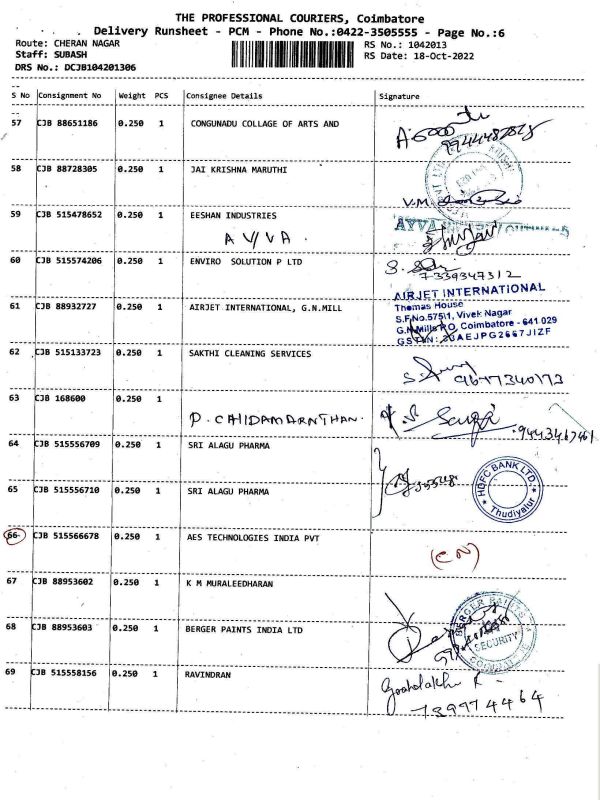 THE PROFESSIONAL COURIERS, Coimbatore
Delivery Runsheet - PCM - Phone No.:0422-3505555 - Page No.:6
Route: CHERAN NAGAR RS No.: 1042013
Staff: SUBASH RS Date: 18-Oct-2022
DRS No.: DCJB104201306
S No Consignment No Weight PCS Consignee Details Signature
57 CJB 88651186 0.250 1 CONGUNADU COLLAGE OF ARTS AND
58 CJB 88728305 0.250 1 JAI KRISHNA MARUTHI
V.M.
59 CJB 515478652 0.250 1 EESHAN INDUSTRIES
AYVA
A V/VA
60 CJB 515574206 0.250 1 ENVIRO SOLUTION P LTD
7339347312
61 CJB 88932727 0.250 1 AIRJET INTERNATIONAL, G.N.MILL
AIRJET INTERNATIONAL
Thomas House
S.F.No.575/1, Vivek Nagar
G.N.Mills PO, Coimbatore - 641 029
62 CJB 515133723 0.250 1 SAKTHI CLEANING SERVICES
9677340173
63 CJB 168600 0.250 1
P. CHIDAMARNTHAN.
64 CJB 515556709 0.250 1 SRI ALAGU PHARMA
65 CJB 515556710 0.250 1 SRI ALAGU PHARMA
HDFC BANK LTD
Thudiyalur
66 CJB 515566678 0.250 1 AES TECHNOLOGIES INDIA PVT
(CN)
67 CJB 88953602 0.250 1 K M MURALEEDHARAN
68 CJB 88953603 0.250 1 BERGER PAINTS INDIA LTD
BERGER PAINTS
SECURITY
69 CJB 515558156 0.250 1 RAVINDRAN